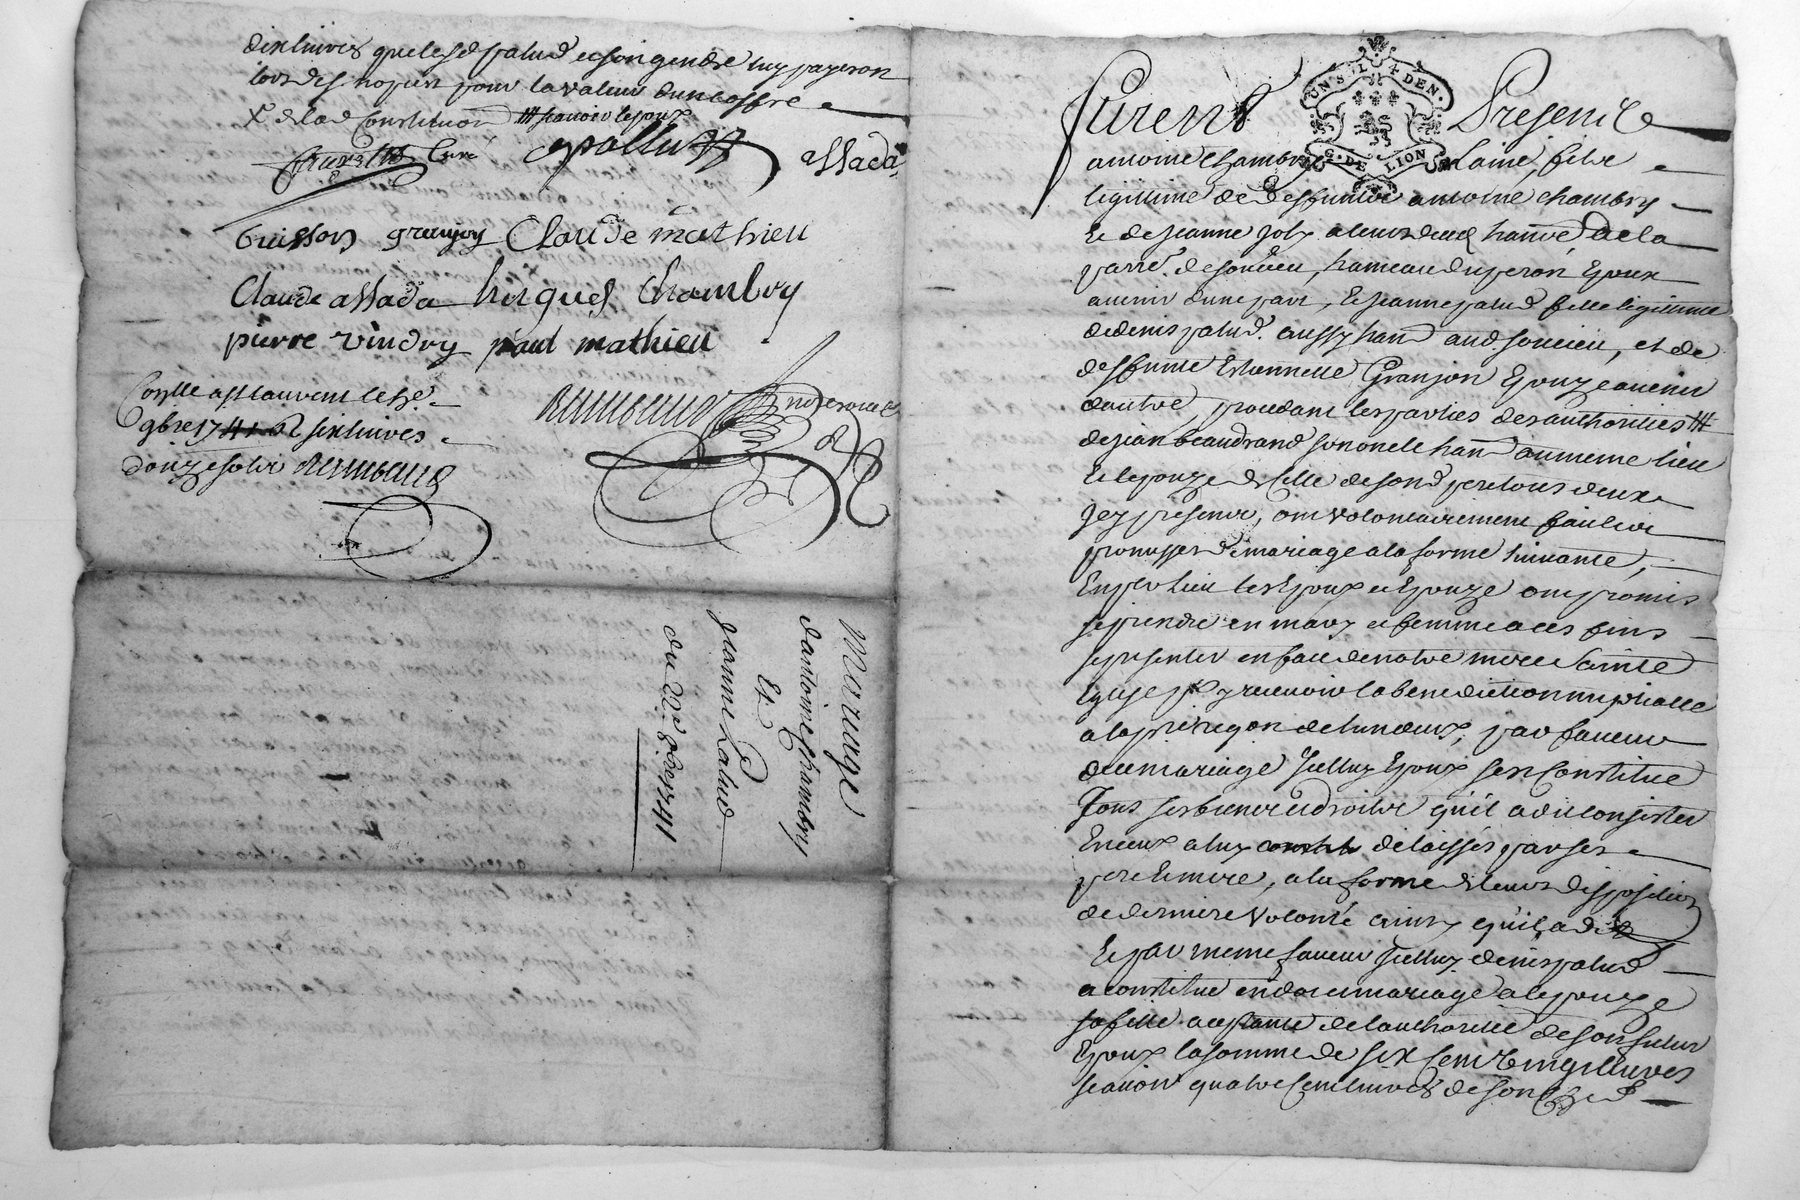 dix livres que led palud et son gendre luy payeron
lors des nopces pour la valeur dun coffre
X de lad Constitution
Curé
assada
buisson granjon Claude mathieu
Claude assada Chambry
pierre vindry paul mathieu
9bre 1741 six livres
douze sols
Mariage
dantoine Chambry
Et
jeanne Palud
du 22e 8bre 1741
furent Presents
UN S. 4 DEN.
G. DE LION
antoine Chambry Laine, fils
legitime de deffunts antoine chambry
Et de jeanne joly a leurs vivant hants de la
parre. de soucieu, hameau du peron Epoux
avenir dune part, Et jeanne palud fille legitime
de denis palud aussy hant aud. soucieu, et de
deffunte Estiennette Granjon Epouze avenir
dautre, procedant les parties des authorités
de jean beaudrand son oncle hant au meme lieu
Et lepouze de Celle de sond pere tous deux
Jcy presents, ont volontairement fait les
promesses de mariage a la forme suivante,
En pr lieu les Epoux et Epouze ont promis
se prendre en mary et femme a ces fins
se presenter en face de notre mere Sainte
Eglise pr y recevoir la benediction nuptialle
a la pre requon de lun deux, par faveur
du mariage Jcelluy Epoux sest Constitue
Tous ses biens et droits qu'il a dit consister
En ceux a luy delaissés par ses
pere Et mere, a la forme de leurs disposition
de derniere volonté ainsy qu'il a dit
Et par meme faveur Jcelluy denis palud
a constitue en dot et mariage a lepouze
sa fille acceptante de lauthorité de son futur
Epoux la somme de six Cent vingt livres
scavoir quatre Cent livres de son Chef